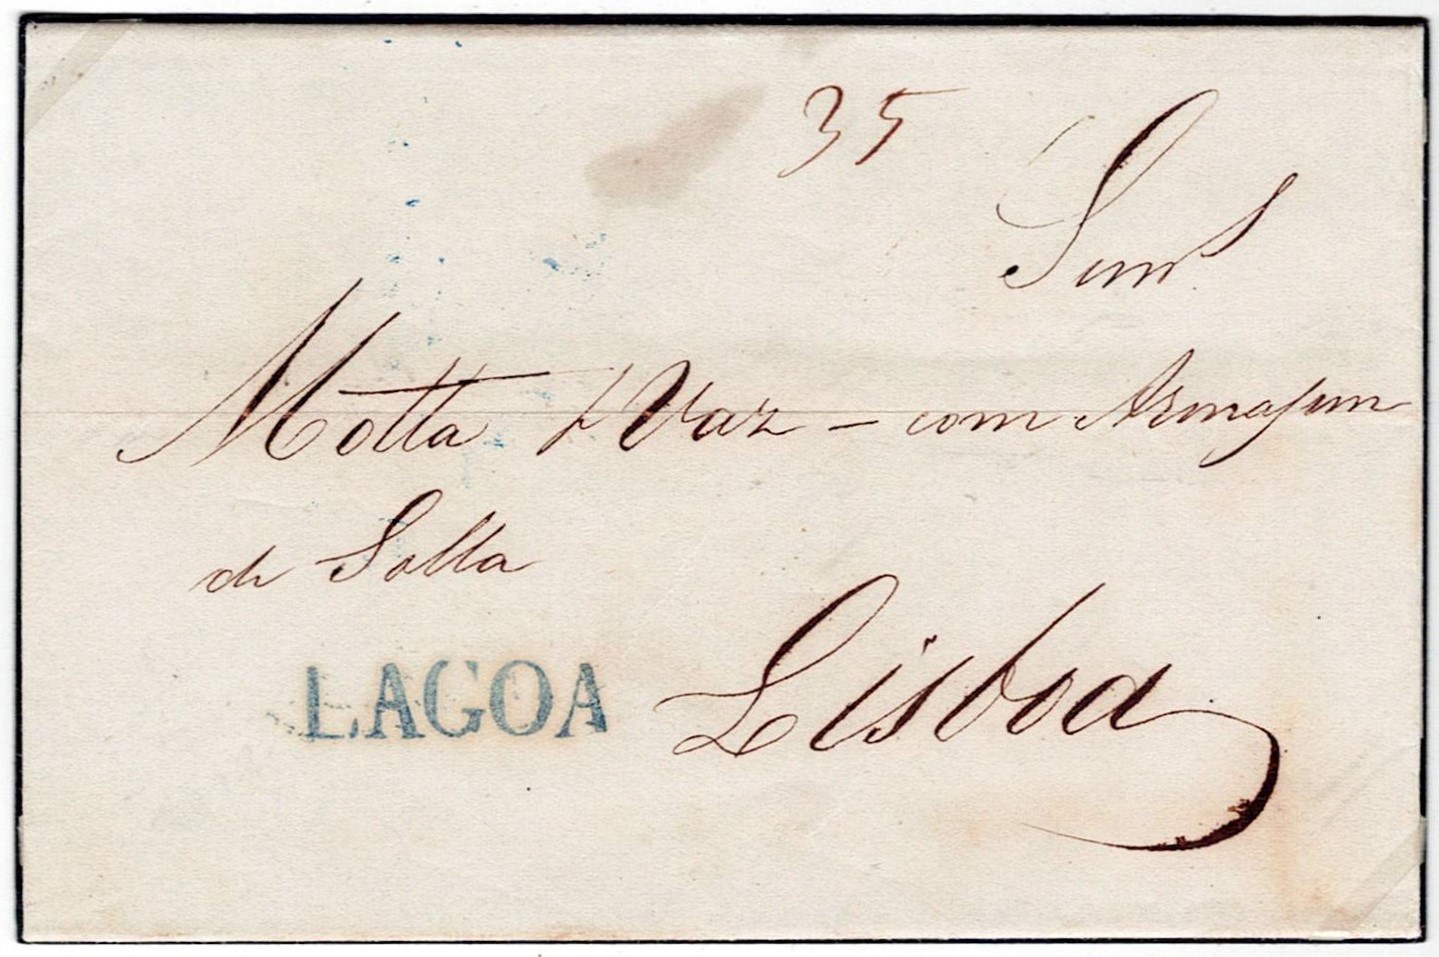 35
Snrs
Motta & Vaz - com Armasem
de Solla
LAGOA
Lisboa